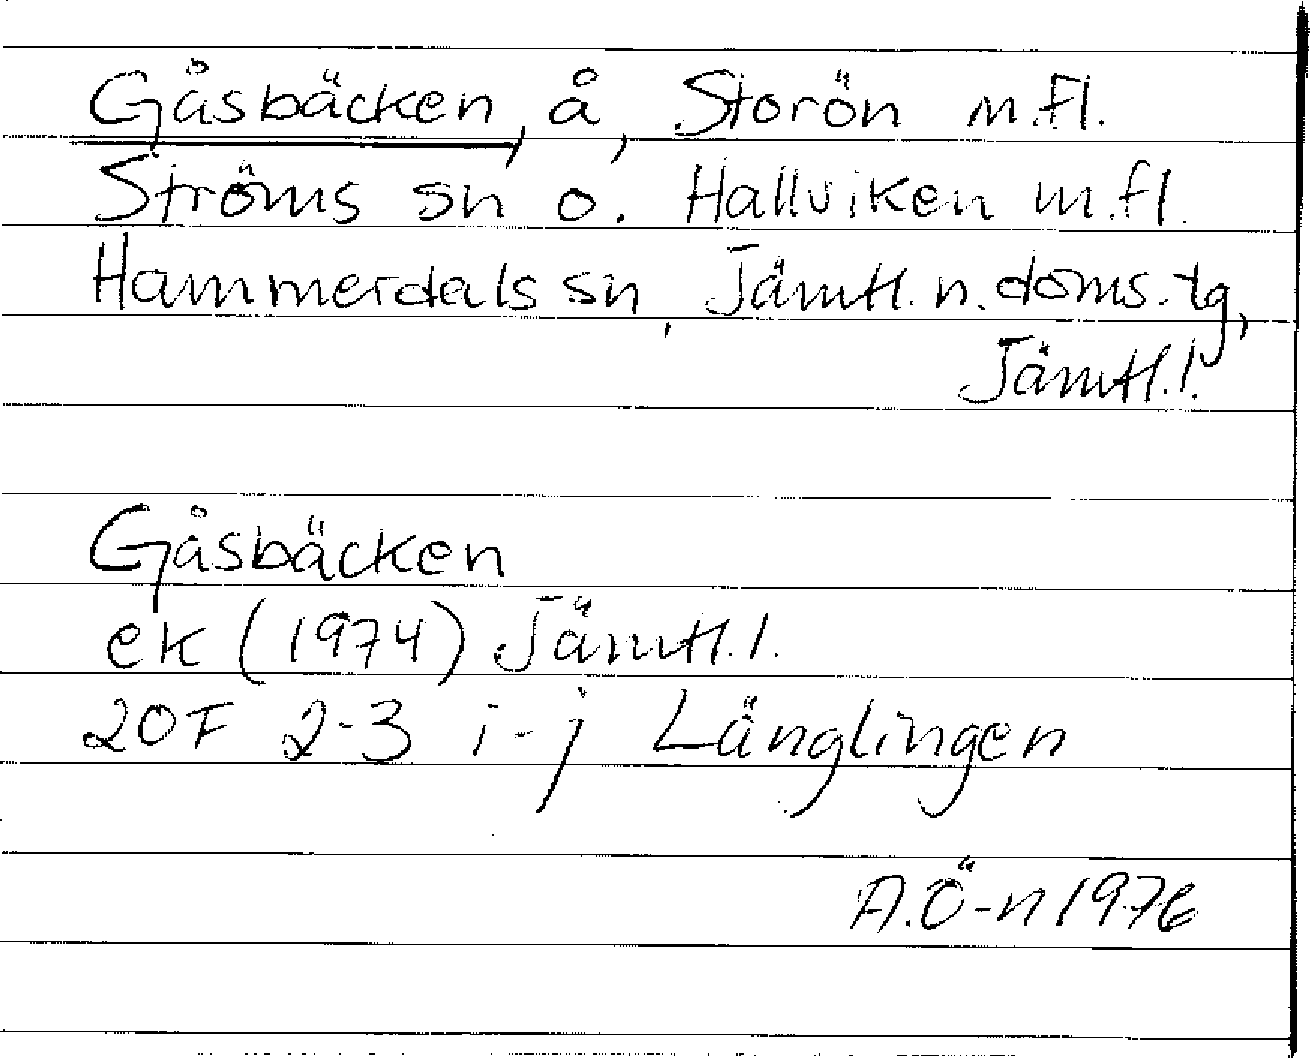 Gåsbäcken, å, Storön m.fl.
Ströms sn o. Hallviken m.fl.
Hammerdals sn, Jämtl. n. doms. tg,
Jämtl. l.
Gåsbäcken
ek (1974) Jämtl. l.
20F 2-3 i-j Länglingen
A.Ö-n 1976